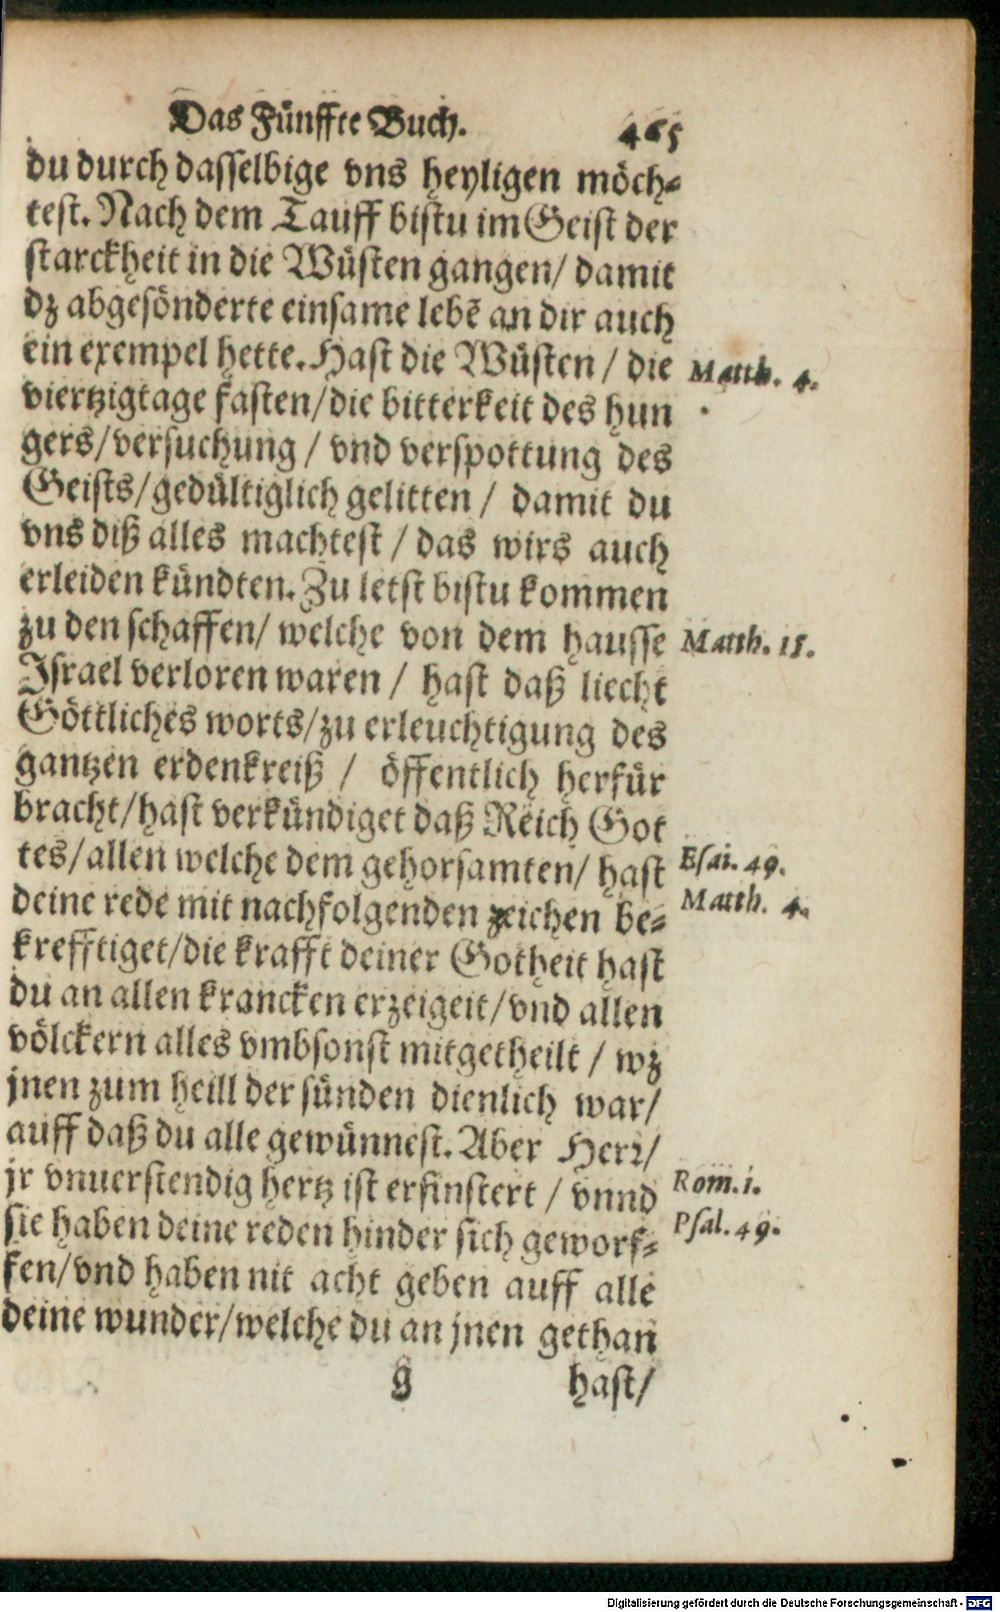 Das Fünffte Buch. 465
du durch dasselbige vns heyligen möch-
test. Nach dem Tauff bistu im Geist der
starckheit in die Wüsten gangen/ damit
dz abgesönderte einsame lebẽ an dir auch
ein exempel hette. Hast die Wüsten / die
Matth. 4.
viertzigtage fasten/die bitterkeit des hun
gers/versuchung / vnd verspottung des
Geists/gedültiglich gelitten / damit du
vns diß alles machtest / das wirs auch
erleiden kündten. Zu letst bistu kommen
zu den schaffen/ welche von dem hausse
Matth. 15.
Israel verloren waren / hast daß liecht
Göttliches worts/zu erleuchtigung des
gantzen erdenkreiß / öffentlich herfür
bracht/hast verkündiget daß Reich Got
tes/allen welche dem gehorsamten/ hast
Esai. 49.
deine rede mit nachfolgenden zeichen be-
Matth. 4.
krefftiget/die krafft deiner Gotheit hast
du an allen krancken erzeigeit/vnd allen
völckern alles vmbsonst mitgetheilt / wz
jnen zum heill der sünden dienlich war/
auff daß du alle gewünnest. Aber Herr/
jr vnuerstendig hertz ist erfinstert / vnnd
Rom. 1.
sie haben deine reden hinder sich geworf-
Psal. 49.
fen/vnd haben nit acht geben auff alle
deine wunder/welche du an jnen gethan
g hast/
Digitalisierung gefördert durch die Deutsche Forschungsgemeinschaft - DFG